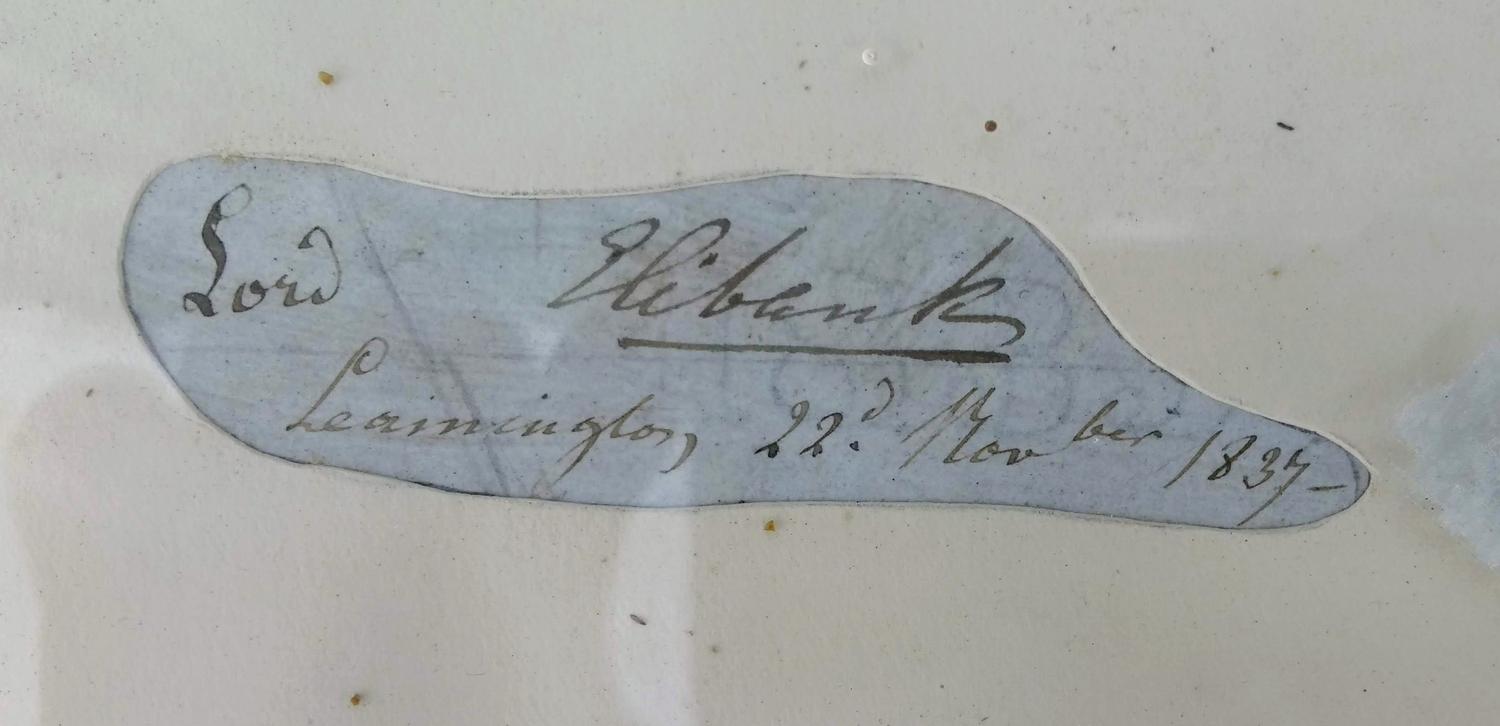 Lord Elibank
Leamington, 22.d Novber 1837-